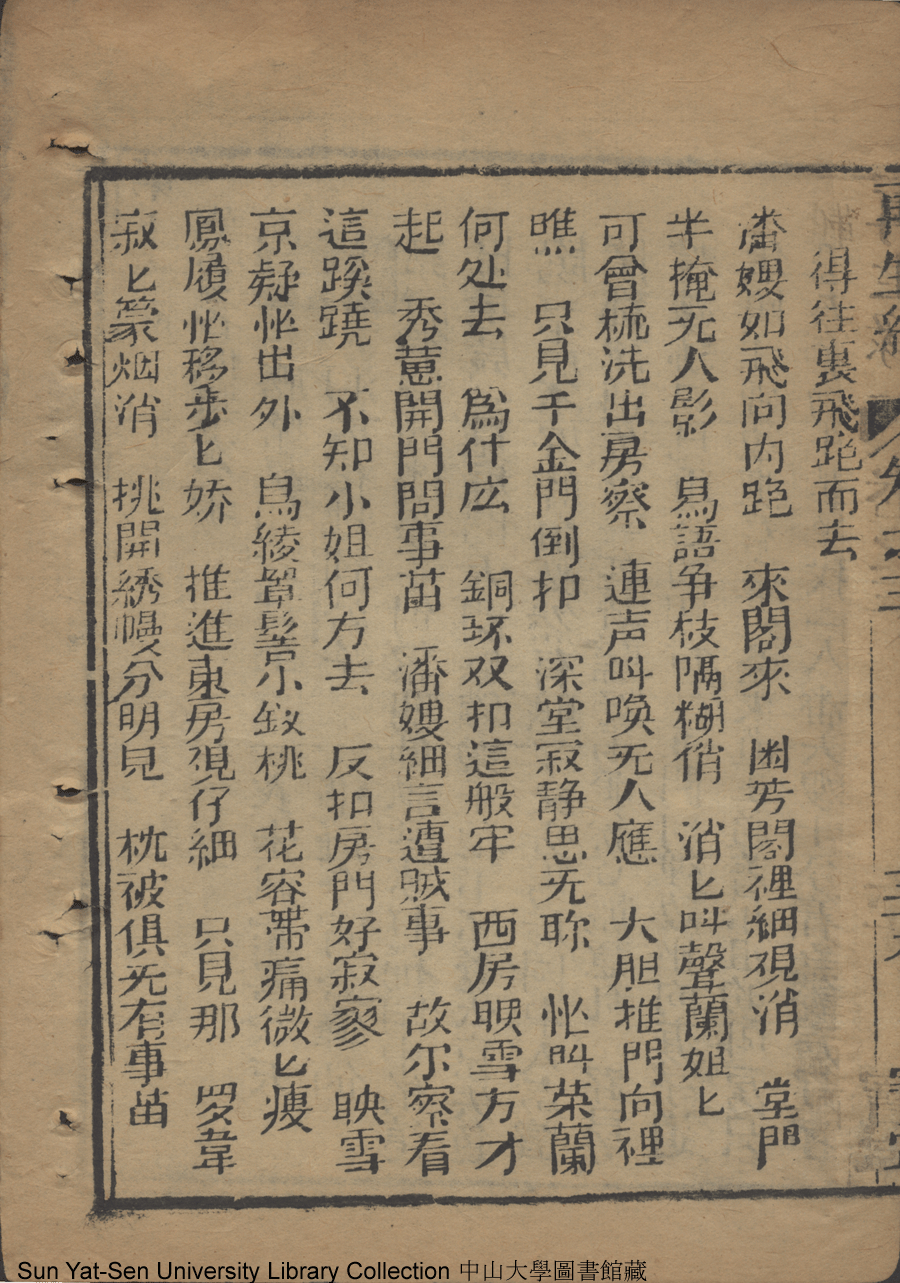 再生緣 卷之三
得往裏飛跑而去
潘嫂如飛向内跑 來閣來 幽芳閣裡細視消 堂門
半掩无人影 鳥語争枝隔糊俏 消匕叫聲蘭姐匕
可曾梳洗出房察 連声叫喚无人應 大胆推門向裡
瞧 只見千金門倒扣 深堂寂静思无聊 怅叫荣蘭
何处去 爲什庅 銅环双扣這般牢 西房映雪方才
起 秀蕙開門問事苗 潘嫂細言遭贼事 故尔察看
這蹊蹺 不知小姐何方去 反扣房門好寂寥 映雪
京疑怅出外 鳥綾罩髻小釵桃 花容帯痛微匕痩
鳳履怅移步匕娇 推進東房視仔細 只見那 罗韋
寂匕篆烟消 挑開綉幔分明見 枕被俱无有事苗
Sun Yat-Sen University Library Collection 中山大學圖書館藏